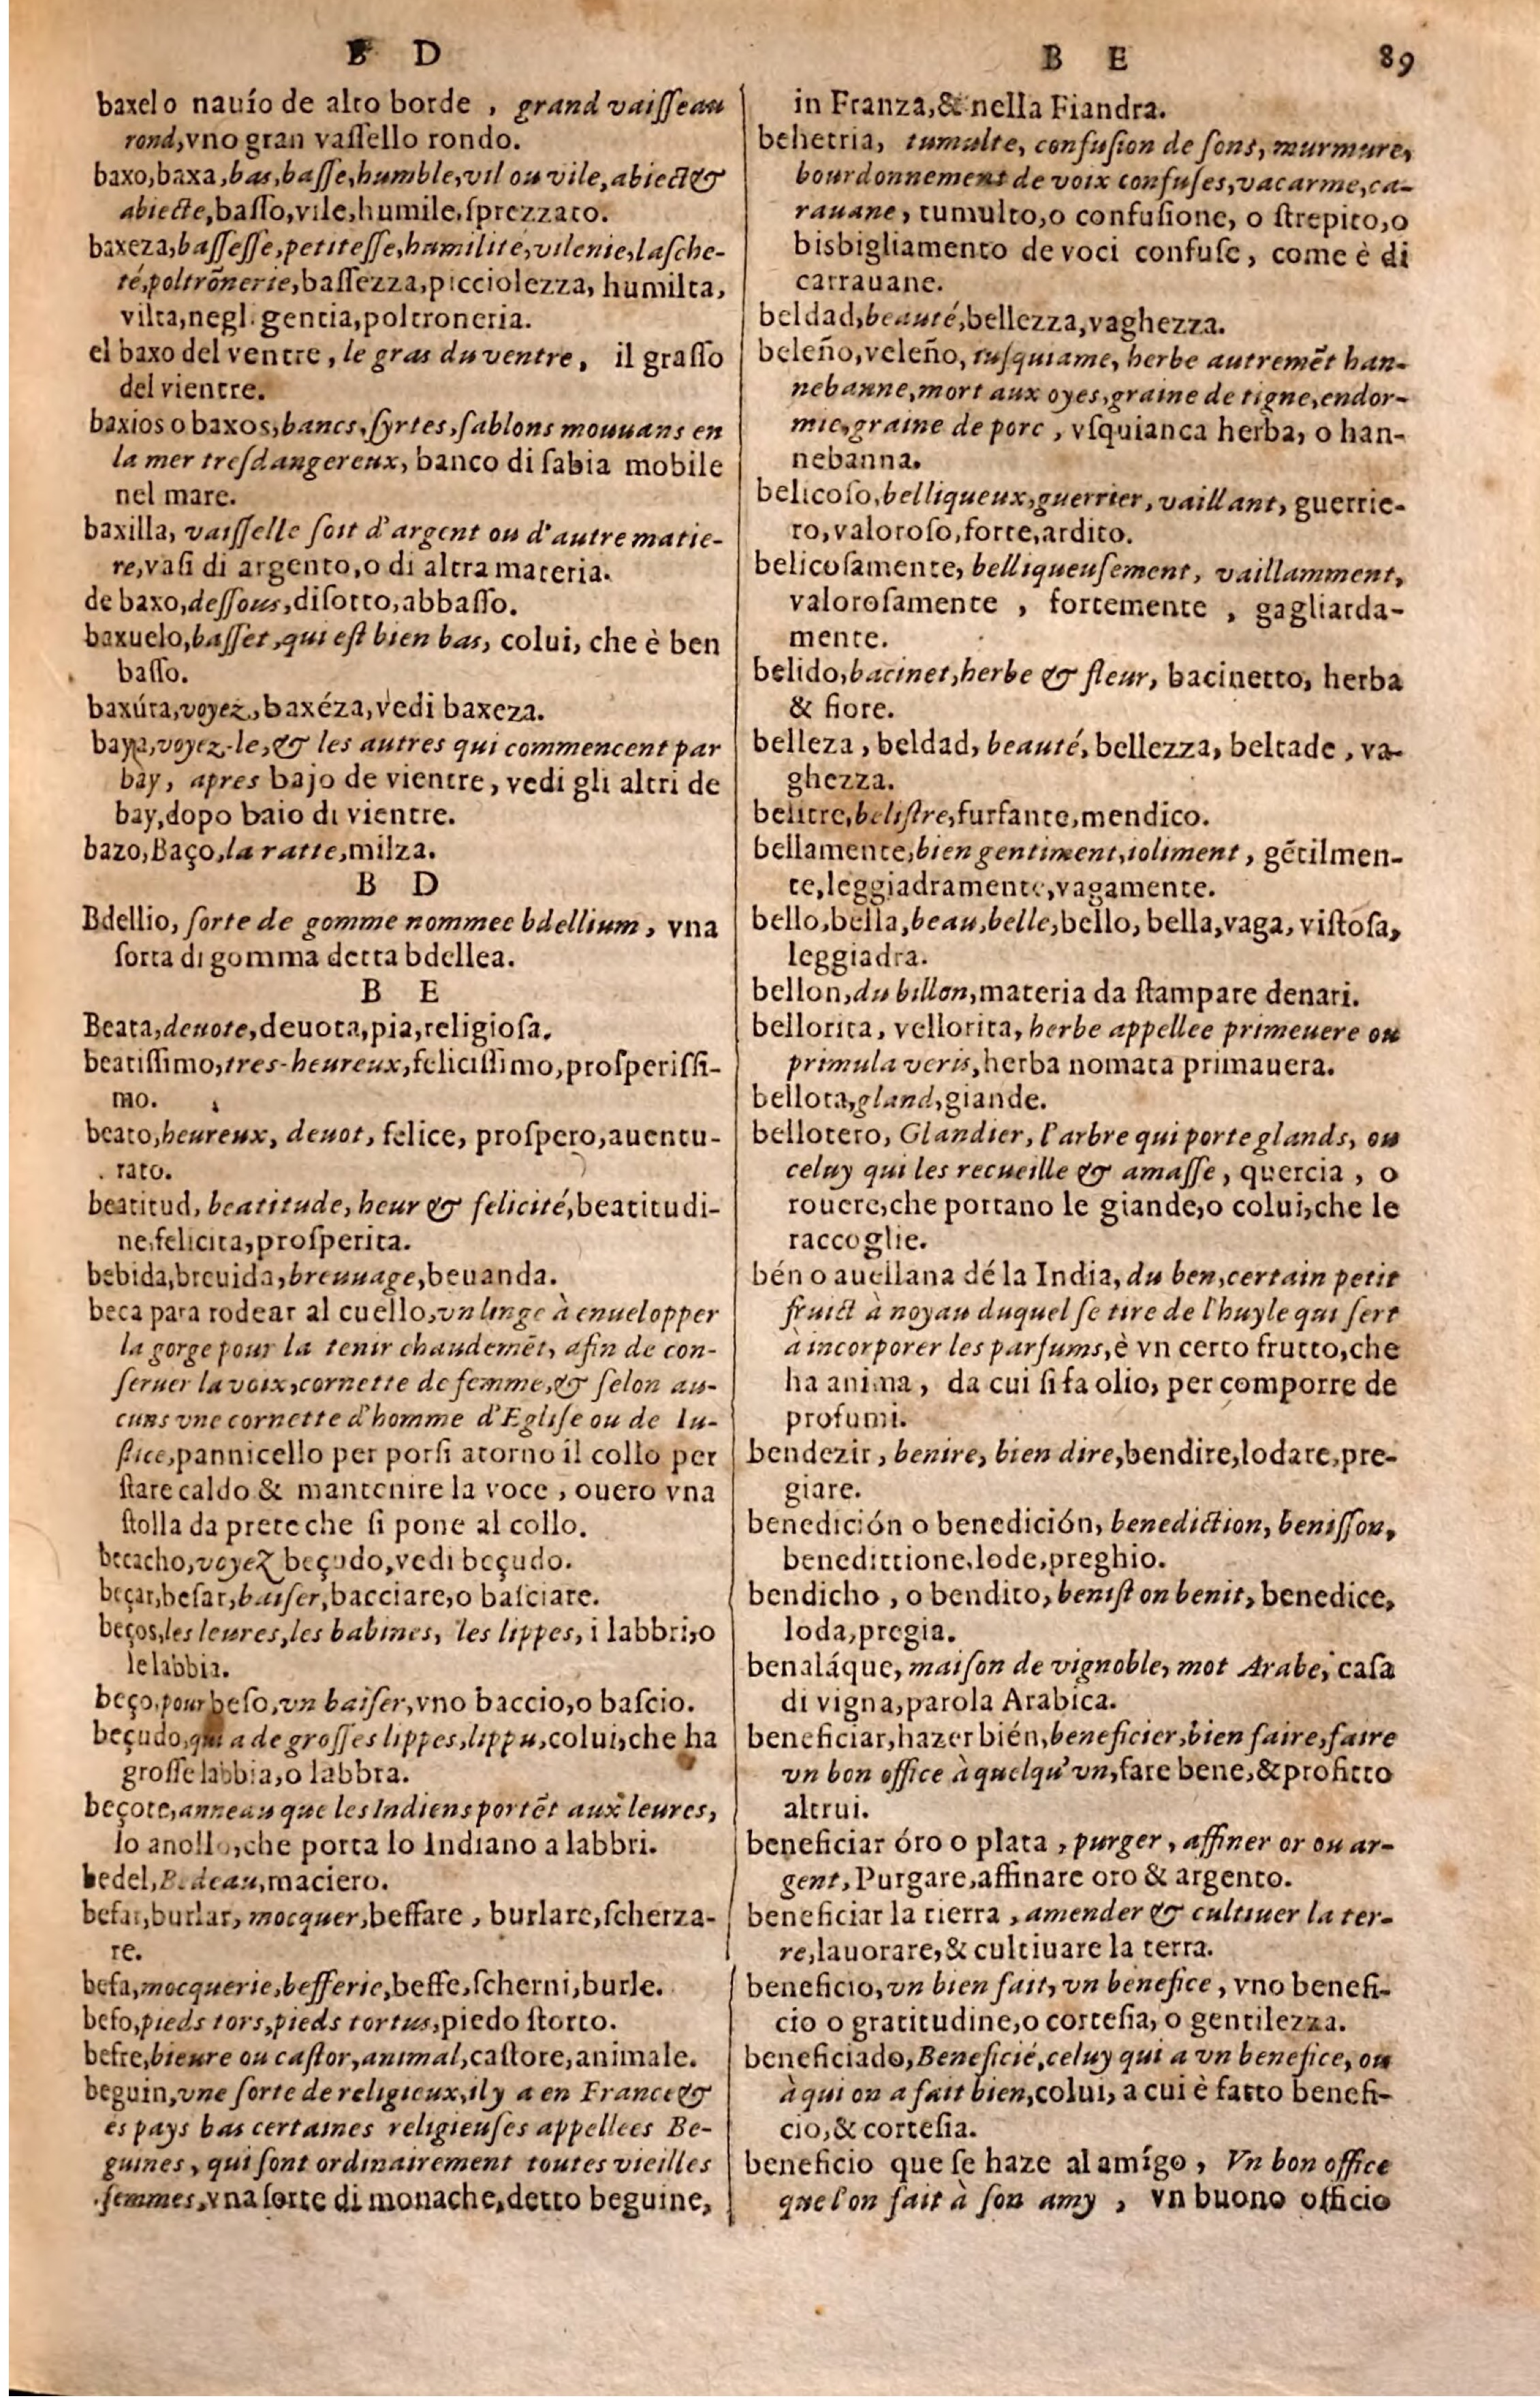 B D
baxel o nauío de alto borde , grand vaiſſeau
rond,vno gran vaſſello rondo.
baxo,baxa,bas,baſſe,humble,vil ou vile,abiect &
abiecte,baſſo,vile,humile,ſprezzato.
baxeza,baſſeſſe,petiteſſe,humilité,vilenie,laſche-
té,poltrõnerie,baſſezza,picciolezza, humilta,
vilta,negligentia,poltroneria.
el baxo del ventre, le gras du ventre, il graſſo
del vientre.
baxios o baxos,bancs,ſyrtes,ſablons mouuans en
la mer treſdangereux, banco di ſabia mobile
nel mare.
baxilla, vaiſſelle ſoit d'argent ou d'autre matie-
re,vaſi di argento,o di altra materia.
de baxo,deſſous,diſotto,abbaſſo.
baxuelo,baſſet,qui eſt bien bas, colui, che è ben
baſſo.
baxúra,voyez,baxéza,vedi baxeza.
baya,voyez-le,& les autres qui commencent par
bay, apres bajo de vientre, vedi gli altri de
bay,dopo baio di vientre.
bazo,Baço,la ratte,milza.
B D
Bdellio, ſorte de gomme nommee bdellium, vna
ſorta di gomma detta bdellea.
B E
Beata,deuote,deuota,pia,religioſa.
beatiſſimo,tres-heureux,feliciſſimo,proſperiſſi-
mo.
beato,heureux, deuot, felice, proſpero,auentu-
rato.
beatitud, beatitude, heur & felicité,beatitudi-
ne,felicita,proſperita.
bebida,breuida,breuuage,beuanda.
beca para rodear al cuello,vn linge à enuelopper
la gorge pour la tenir chaudemẽt, afin de con-
ſeruer la voix,cornette de femme,& ſelon au-
cuns vne cornette d'homme d'Egliſe ou de Iu-
ſtice,pannicello per porſi atorno il collo per
ſtare caldo & mantenire la voce , ouero vna
ſtolla da prete che ſi pone al collo.
becacho,voyez beçudo,vedi beçudo.
beçar,beſar,baiſer,bacciare,o baſciare.
beços,les leures,les babines, les lippes, i labbri,o
le labbia.
beço,pour beſo,vn baiſer,vno baccio,o baſcio.
beçudo,qui a de groſſes lippes,lippu,colui,che ha
groſſe labbia,o labbra.
beçote,anneau que les Indiens portẽt aux leures,
lo anollo,che porta lo Indiano a labbri.
bedel,Bedeau,maciero.
befar,burlar, mocquer,beffare , burlare,ſcherza-
re.
befa,mocquerie,befferie,beffe,ſcherni,burle.
befo,pieds tors,pieds tortus,piedo ſtorto.
befre,bieure ou caſtor,animal,caſtore,animale.
beguin,vne ſorte de religieux,il y a en France &
es pays bas certaines religieuſes appellees Be-
guines, qui ſont ordinairement toutes vieilles
femmes,vna ſorte di monache,detto beguine,
B E 89
in Franza,& nella Fiandra.
behetria, tumulte, confuſion de ſons, murmure,
bourdonnement de voix confuſes,vacarme,ca-
rauane, tumulto,o confuſione, o ſtrepito,o
bisbigliamento de voci confuſe, come è di
carrauane.
beldad,beauté,bellezza,vaghezza.
beleño,veleño, iuſquiame, herbe autremẽt han-
nebanne,mort aux oyes,graine de tigne,endor-
mie,graine de porc , vſquianca herba, o han-
nebanna.
belicoſo,belliqueux,guerrier, vaillant, guerrie-
ro,valoroſo,forte,ardito.
belicoſamente, belliqueuſement, vaillamment,
valoroſamente , fortemente , gagliarda-
mente.
belido,bacinet,herbe & fleur, bacinetto, herba
& fiore.
belleza, beldad, beauté, bellezza, beltade , va-
ghezza.
belitre,beliſtre,furfante,mendico.
bellamente,bien gentiment,ioliment , gẽtilmen-
te,leggiadramente,vagamente.
bello,bella,beau,belle,bello, bella,vaga, viſtoſa,
leggiadra.
bellon,du billon,materia da ſtampare denari.
bellorita, vellorita, herbe appellee primeuere ou
primula veris,herba nomata primauera.
bellota,gland,giande.
bellotero, Glandier, l'arbre qui porte glands, ou
celuy qui les recueille & amaſſe , quercia , o
rouere,che portano le giande,o colui,che le
raccoglie.
bén o auellana dé la India, du ben,certain petit
fruict à noyau duquel ſe tire de l'huyle qui ſert
à incorporer les parfums,è vn certo frutto,che
ha anima , da cui ſi fa olio, per comporre de
profumi.
bendezir , benire, bien dire,bendire,lodare,pre-
giare.
benedición o benedición, benediction, beniſſon,
benedittione,lode,preghio.
bendicho , o bendito, beniſt on benit, benedice,
loda,pregia.
benaláque, maiſon de vignoble, mot Arabe, caſa
di vigna,parola Arabica.
beneficiar,hazer bién,beneficier,bien faire,faire
vn bon office à quelqu'vn,fare bene,& profitto
altrui.
beneficiar óro o plata , purger, affiner or ou ar-
gent, Purgare,affinare oro & argento.
beneficiar la tierra , amender & cultiuer la ter-
re,lauorare,& cultiuare la terra.
beneficio,vn bien fait, vn benefice , vno benefi-
cio o gratitudine,o corteſia, o gentilezza.
beneficiado,Beneficié,celuy qui a vn benefice, ou
à qui on a fait bien,colui, a cui è fatto benefi-
cio,& corteſia.
beneficio que ſe haze al amígo , Vn bon office
que l'on fait à ſon amy , vn buono officio